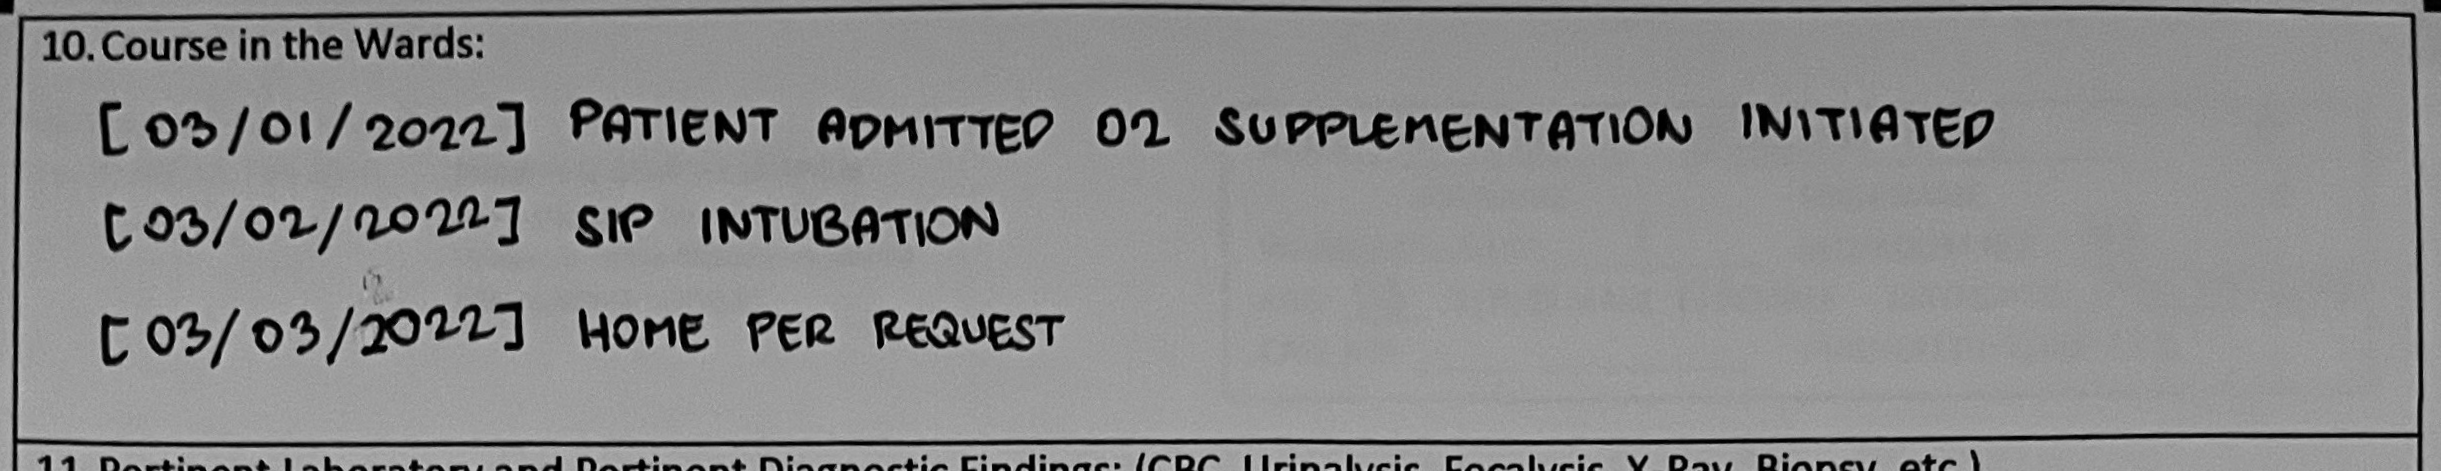 10. Course in the Wards:
[03/01/2022] PATIENT ADMITTED O2 SUPPLEMENTATION INITIATED
[03/02/2022] SIP INTUBATION
[03/03/2022] HOME PER REQUEST
11. Pertinent Laboratory and Pertinent Diagnostic Findings: (CBC, Urinalysis, Fecalysis, X-Ray, Biopsy, etc.)